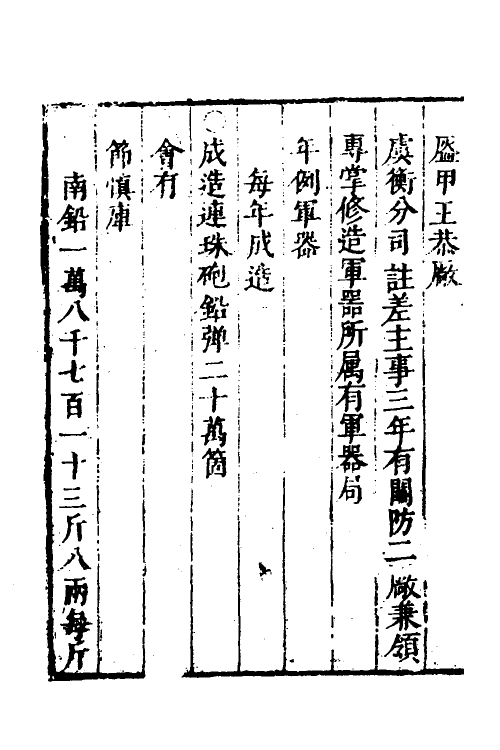 盔甲王恭厰
虞衡分司註差主事三年有關防二厰兼領
專掌修造軍器所属有軍器局
年例軍器
每年成造
○成造連珠砲鉛弹二十萬箇
會有
節慎庫
南鉛一萬八千七百一十三斤八兩每斤